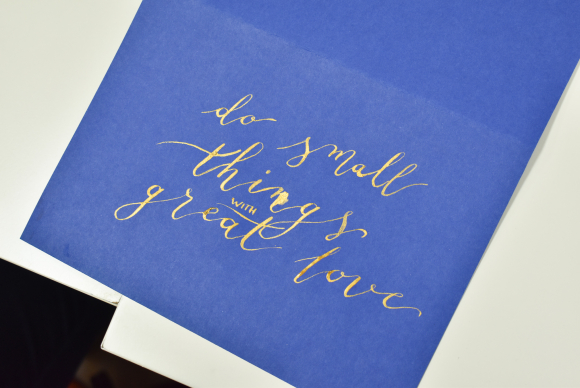 do small
things
WITH
great love